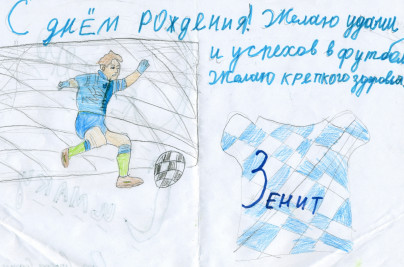 С днём рождения! Желаю удачи
и успехов в футболе
Желаю крепкого здоровья
Зенит